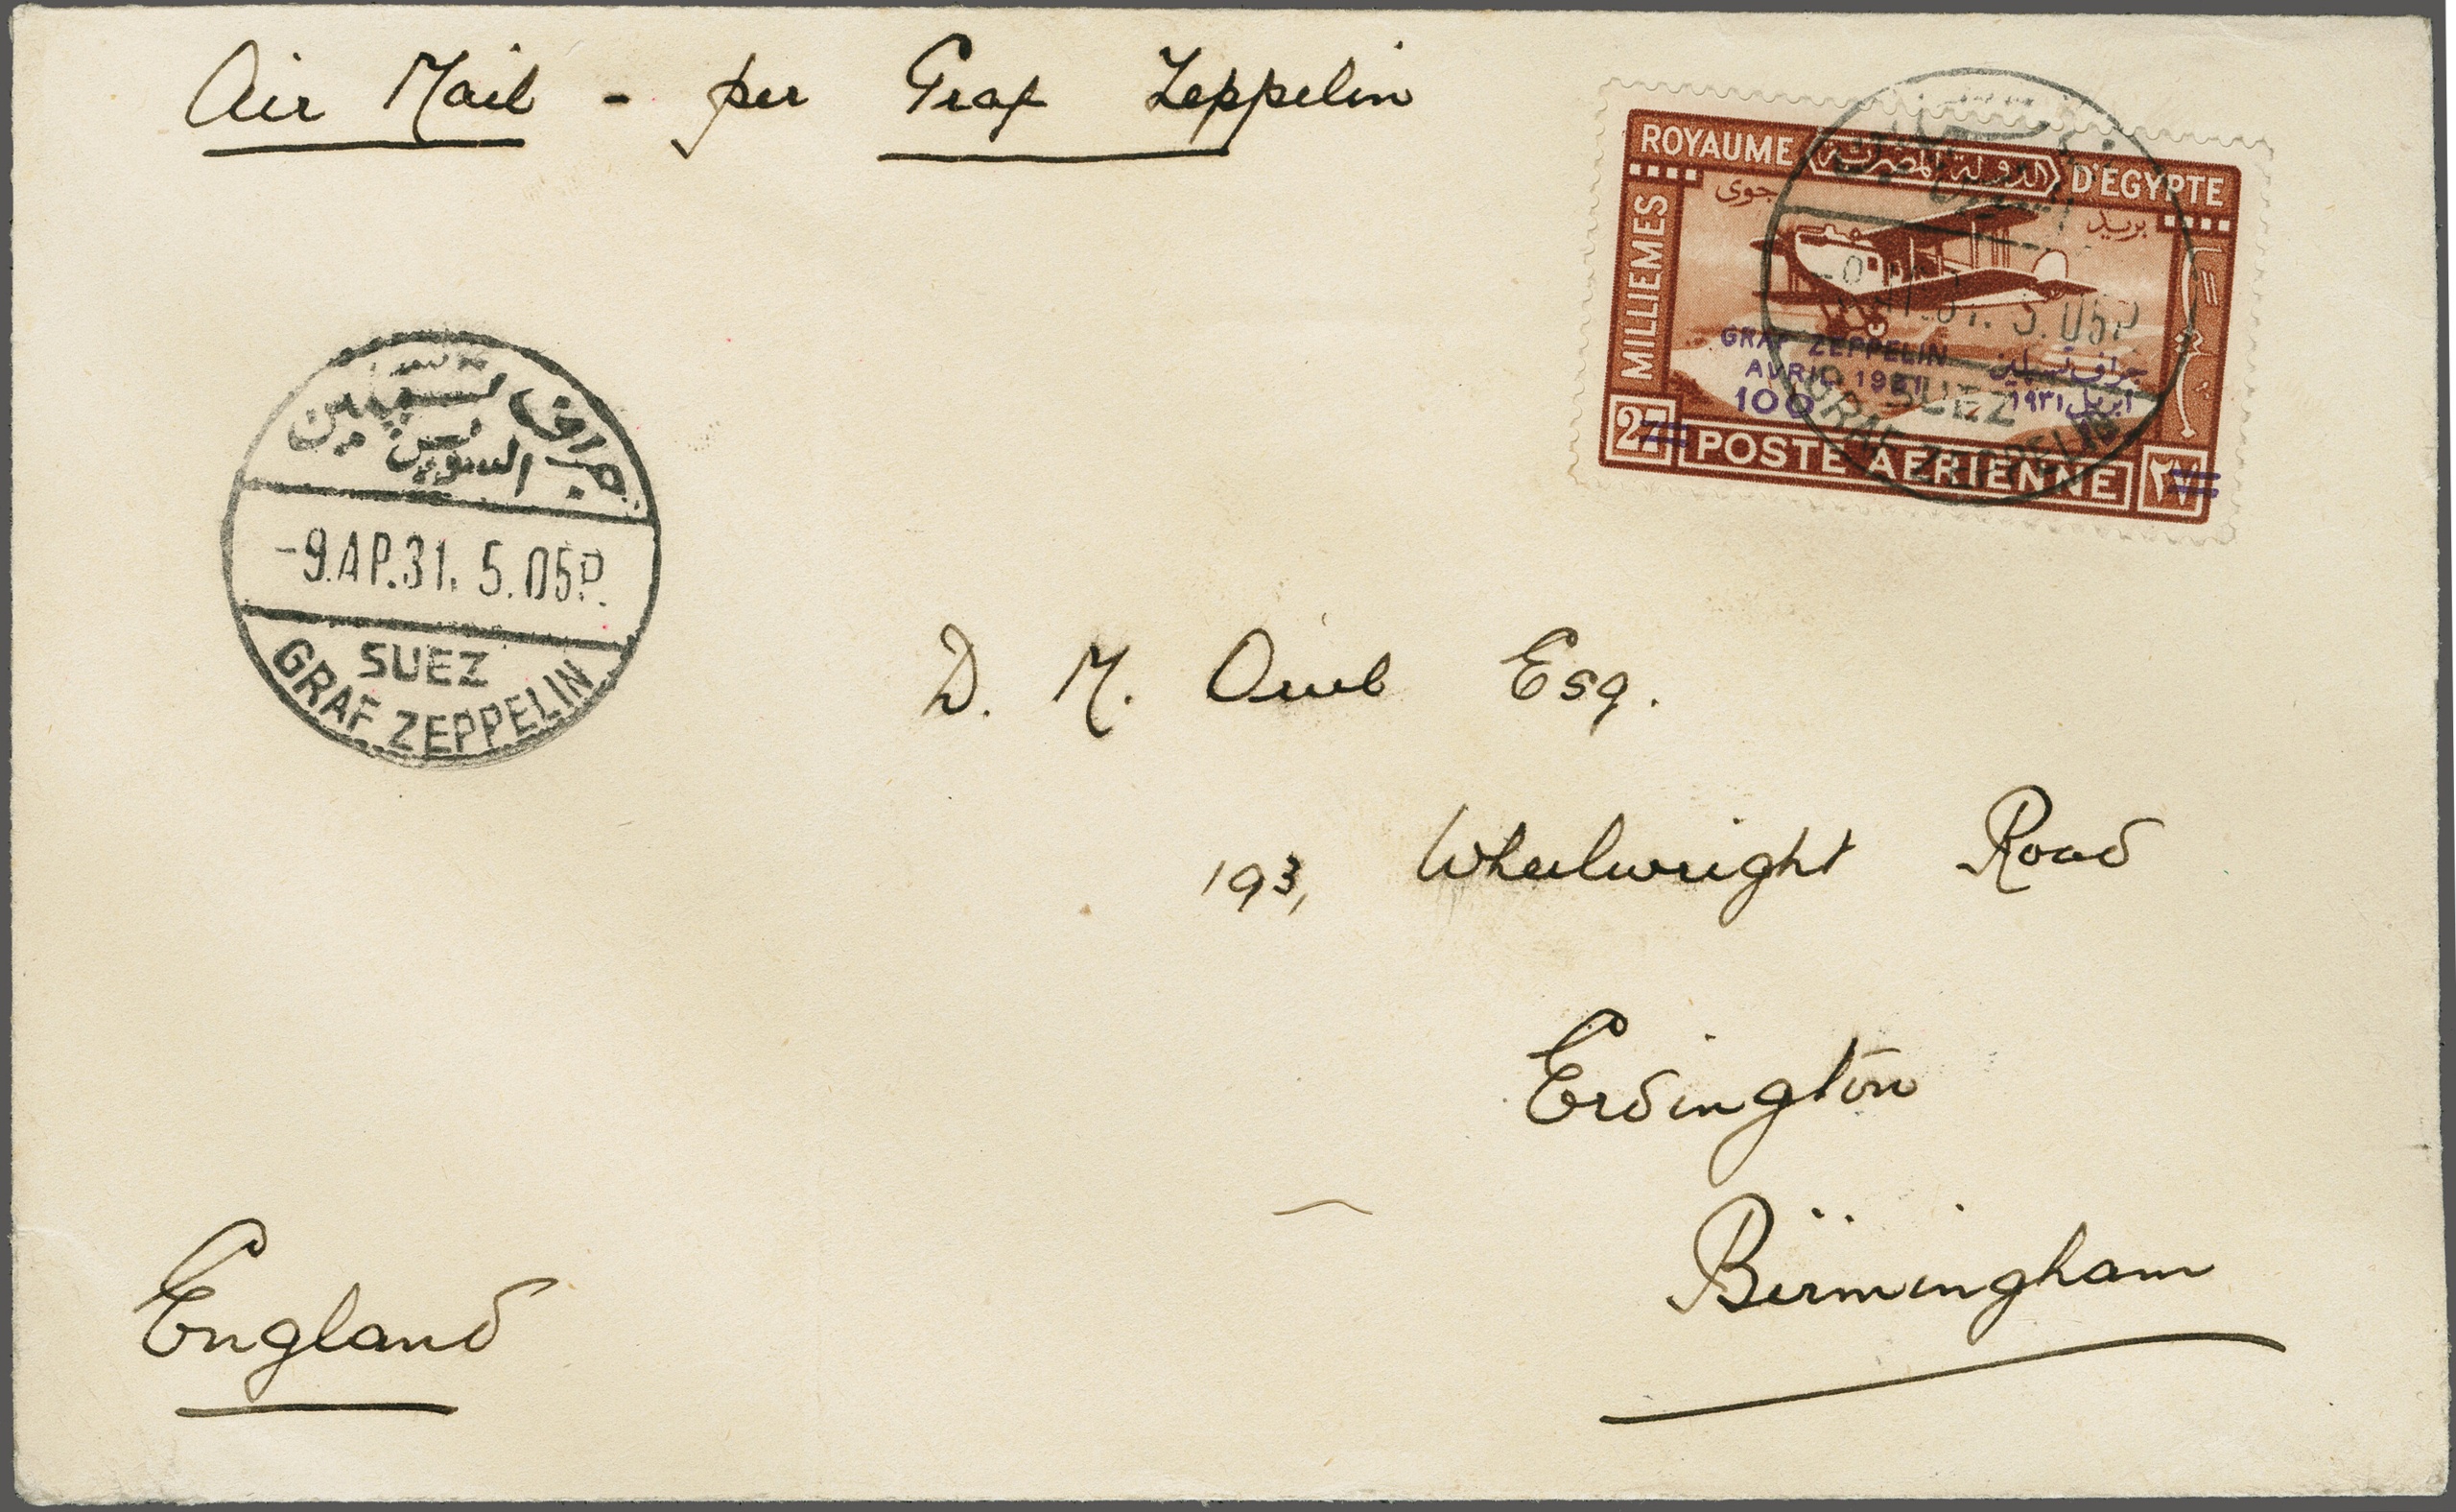 Air Mail - per Graf Zeppelin
ROYAUME الدولة المصرية D'EGYPTE
جوى
بريد
MILLIEMES
GRAF ZEPPELIN
AVRIL 1931
100
جراف تسبلين
ابريل ١٩٣١
27 POSTE AERIENNE ٢٧
5.05P
SUEZ
GRAF ZEPPELIN
جراف تسبلين
السويس
-9.AP.31. 5.05P.
SUEZ
GRAF ZEPPELIN
D. M. Esq.
193, Wheelwright Road
Erdington
Birmingham
England